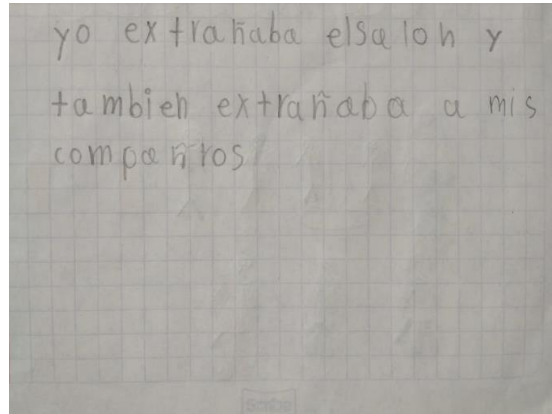 yo extrañaba elsalon y
tambien extrañaba a mis
compañros